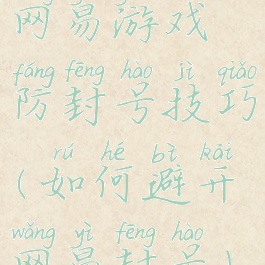 网易游戏
fáng fēng hào jì qiǎo
防封号技巧
rú hé bì kāi
(如何避开
wǎng yì fēng hào
网易封号)